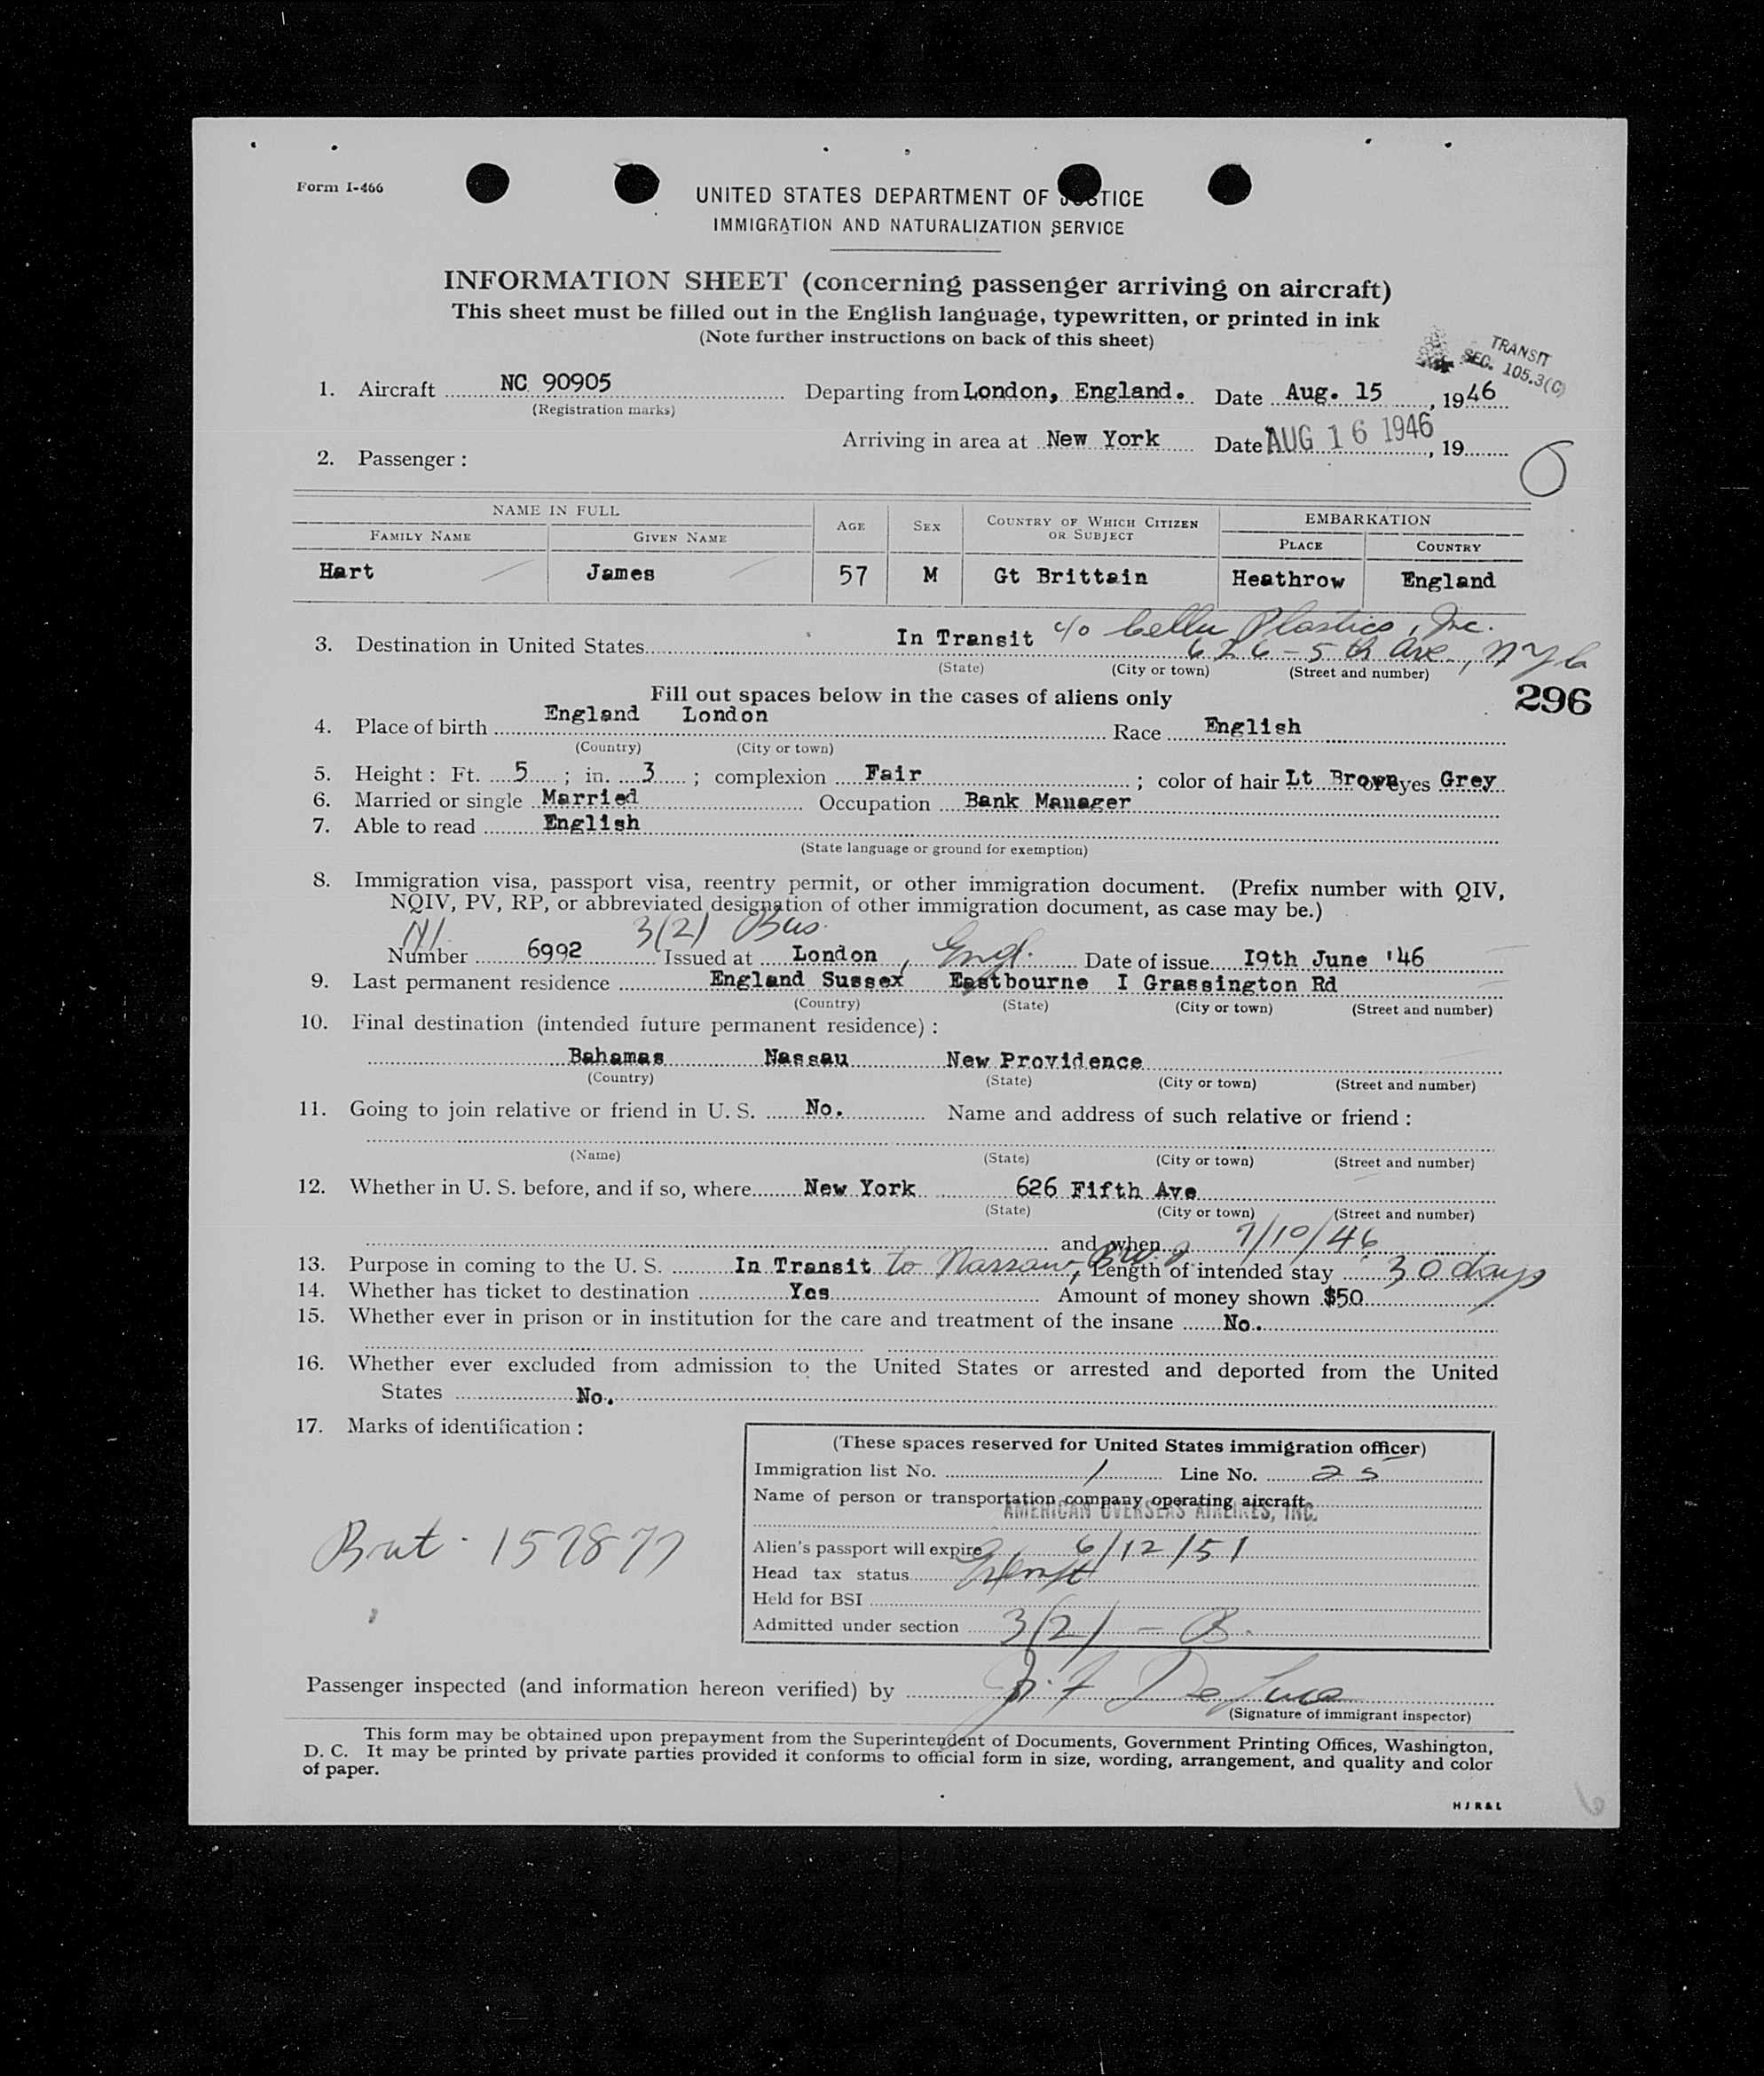 Form I-466
UNITED STATES DEPARTMENT OF JUSTICE
IMMIGRATION AND NATURALIZATION SERVICE
INFORMATION SHEET (concerning passenger arriving on aircraft)
This sheet must be filled out in the English language, typewritten, or printed in ink
(Note further instructions on back of this sheet)
TRANSIT
SEC. 105.3(C)
1. Aircraft NC 90905 Departing from London, England. Date Aug. 15, 1946
(Registration marks)
Arriving in area at New York Date AUG 16 1946, 19
2. Passenger:
NAME IN FULL
FAMILY NAME GIVEN NAME AGE SEX COUNTRY OF WHICH CITIZEN OR SUBJECT EMBARKATION
PLACE COUNTRY
Hart James 57 M Gt Brittain Heathrow England
3. Destination in United States In Transit c/o Cellu Plastics, Inc.
626 - 5th Ave., NYC
(State) (City or town) (Street and number)
296
Fill out spaces below in the cases of aliens only
4. Place of birth England London Race English
(Country) (City or town)
5. Height: Ft. 5; in. 3; complexion Fair; color of hair Lt Brown eyes Grey
6. Married or single Married Occupation Bank Manager
7. Able to read English
(State language or ground for exemption)
8. Immigration visa, passport visa, reentry permit, or other immigration document. (Prefix number with QIV,
NQIV, PV, RP, or abbreviated designation of other immigration document, as case may be.)
3(2) Bus.
Number 6992 Issued at London, Engl. Date of issue I9th June '46
9. Last permanent residence England Sussex Eastbourne I Grassington Rd
(Country) (State) (City or town) (Street and number)
10. Final destination (intended future permanent residence):
Bahamas Nassau New Providence
(Country) (State) (City or town) (Street and number)
11. Going to join relative or friend in U. S. No. Name and address of such relative or friend:
(Name) (State) (City or town) (Street and number)
12. Whether in U. S. before, and if so, where New York 626 Fifth Ave
(State) (City or town) (Street and number)
and when 7/10/46
13. Purpose in coming to the U. S. In Transit to Nassau, B.W.I. Length of intended stay 30 days
14. Whether has ticket to destination Yes Amount of money shown $50
15. Whether ever in prison or in institution for the care and treatment of the insane No.
16. Whether ever excluded from admission to the United States or arrested and deported from the United
States No.
17. Marks of identification:
(These spaces reserved for United States immigration officer)
Immigration list No. 1 Line No. 25
Name of person or transportation company operating aircraft
AMERICAN OVERSEAS AIRLINES, INC.
Brit. 157877
Alien's passport will expire 6/12/51
Head tax status Exempt
Held for BSI
Admitted under section 3(2) - B.
Passenger inspected (and information hereon verified) by J. F. De Luca
(Signature of immigrant inspector)
This form may be obtained upon prepayment from the Superintendent of Documents, Government Printing Offices, Washington,
D. C. It may be printed by private parties provided it conforms to official form in size, wording, arrangement, and quality and color
of paper.
HJR&L
6